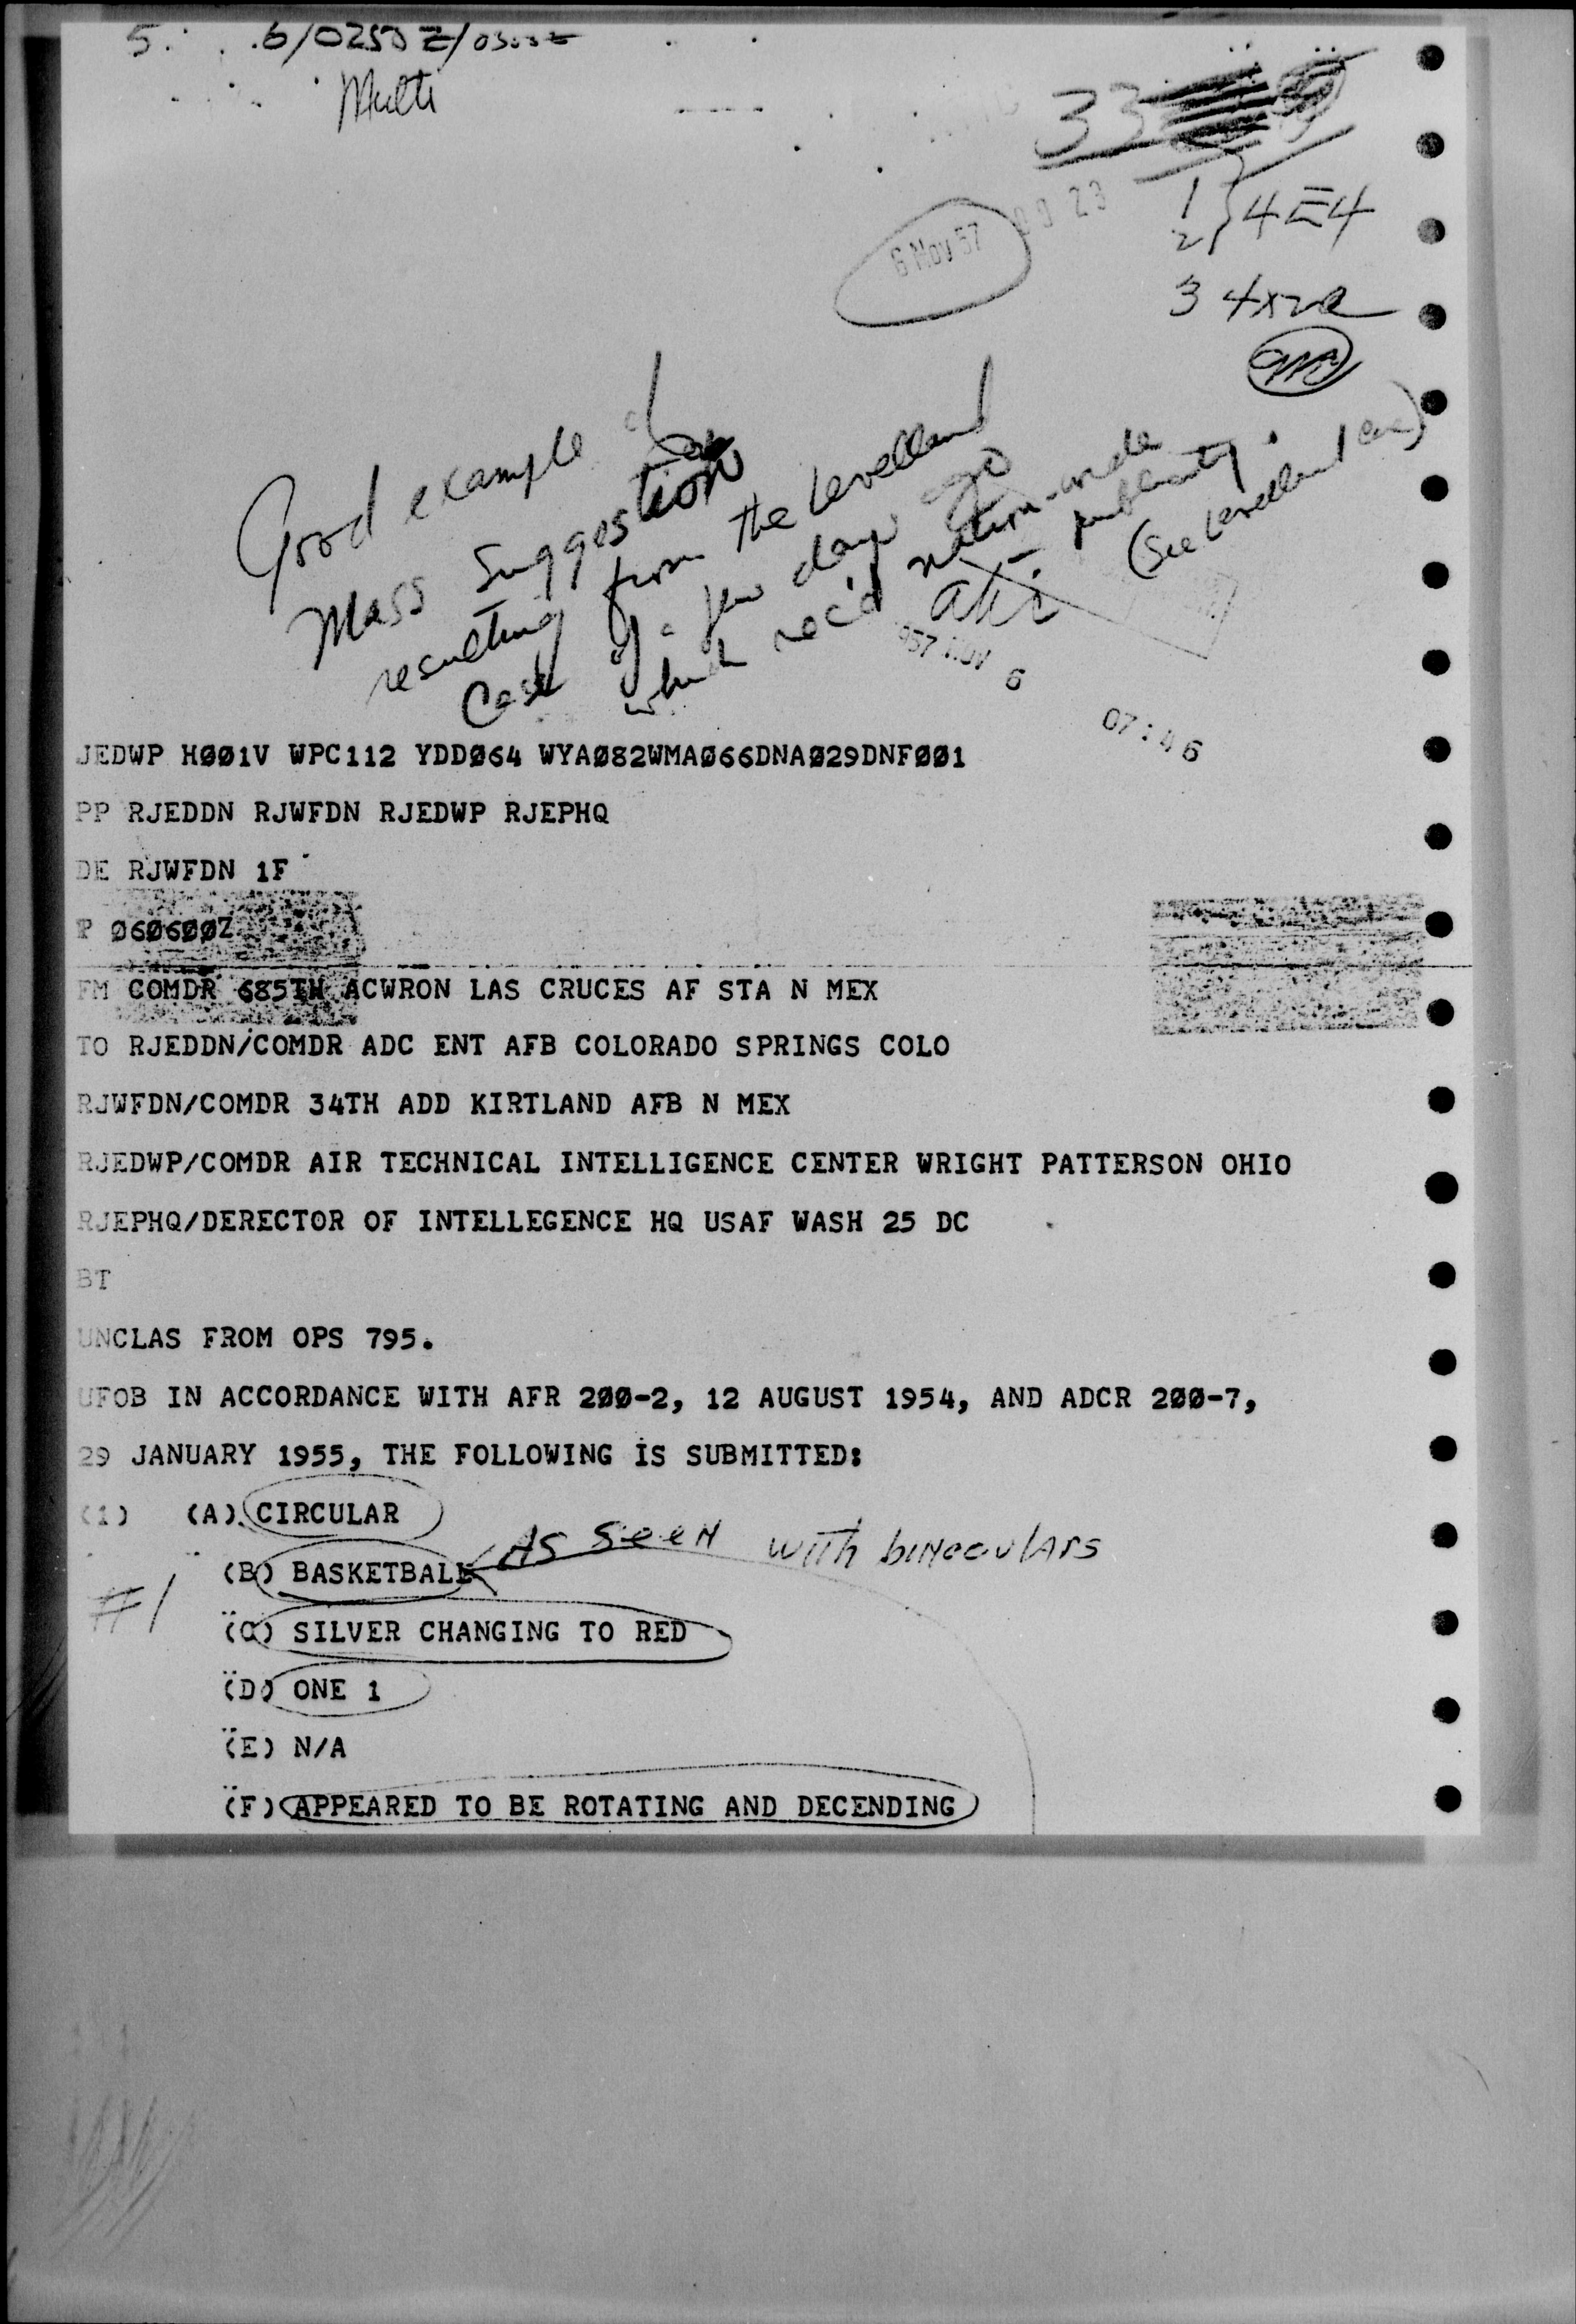 Multi
33
6 Nov 57 23
1
2 } 4E4
3 4x
Good example of
Mass Suggestion
resulting from the Levelland
Case of a few days ago
which rec'd nation-wide
publicity.
(See Levelland case)
957 NOV 6 07:46
JEDWP HØØ1V WPC112 YDDØ64 WYAØ82WMAØ66DNAØ29DNFØØ1
PP RJEDDN RJWFDN RJEDWP RJEPHQ
DE RJWFDN 1F
P Ø6Ø6ØØZ
FM COMDR 685TH ACWRON LAS CRUCES AF STA N MEX
TO RJEDDN/COMDR ADC ENT AFB COLORADO SPRINGS COLO
RJWFDN/COMDR 34TH ADD KIRTLAND AFB N MEX
RJEDWP/COMDR AIR TECHNICAL INTELLIGENCE CENTER WRIGHT PATTERSON OHIO
RJEPHQ/DERECTOR OF INTELLEGENCE HQ USAF WASH 25 DC
BT
UNCLAS FROM OPS 795.
UFOB IN ACCORDANCE WITH AFR 2ØØ-2, 12 AUGUST 1954, AND ADCR 2ØØ-7,
29 JANUARY 1955, THE FOLLOWING IS SUBMITTED:
(1) (A) CIRCULAR
(B) BASKETBALL AS SEEN with binoculars
#1
(C) SILVER CHANGING TO RED
(D) ONE 1
(E) N/A
(F) APPEARED TO BE ROTATING AND DECENDING